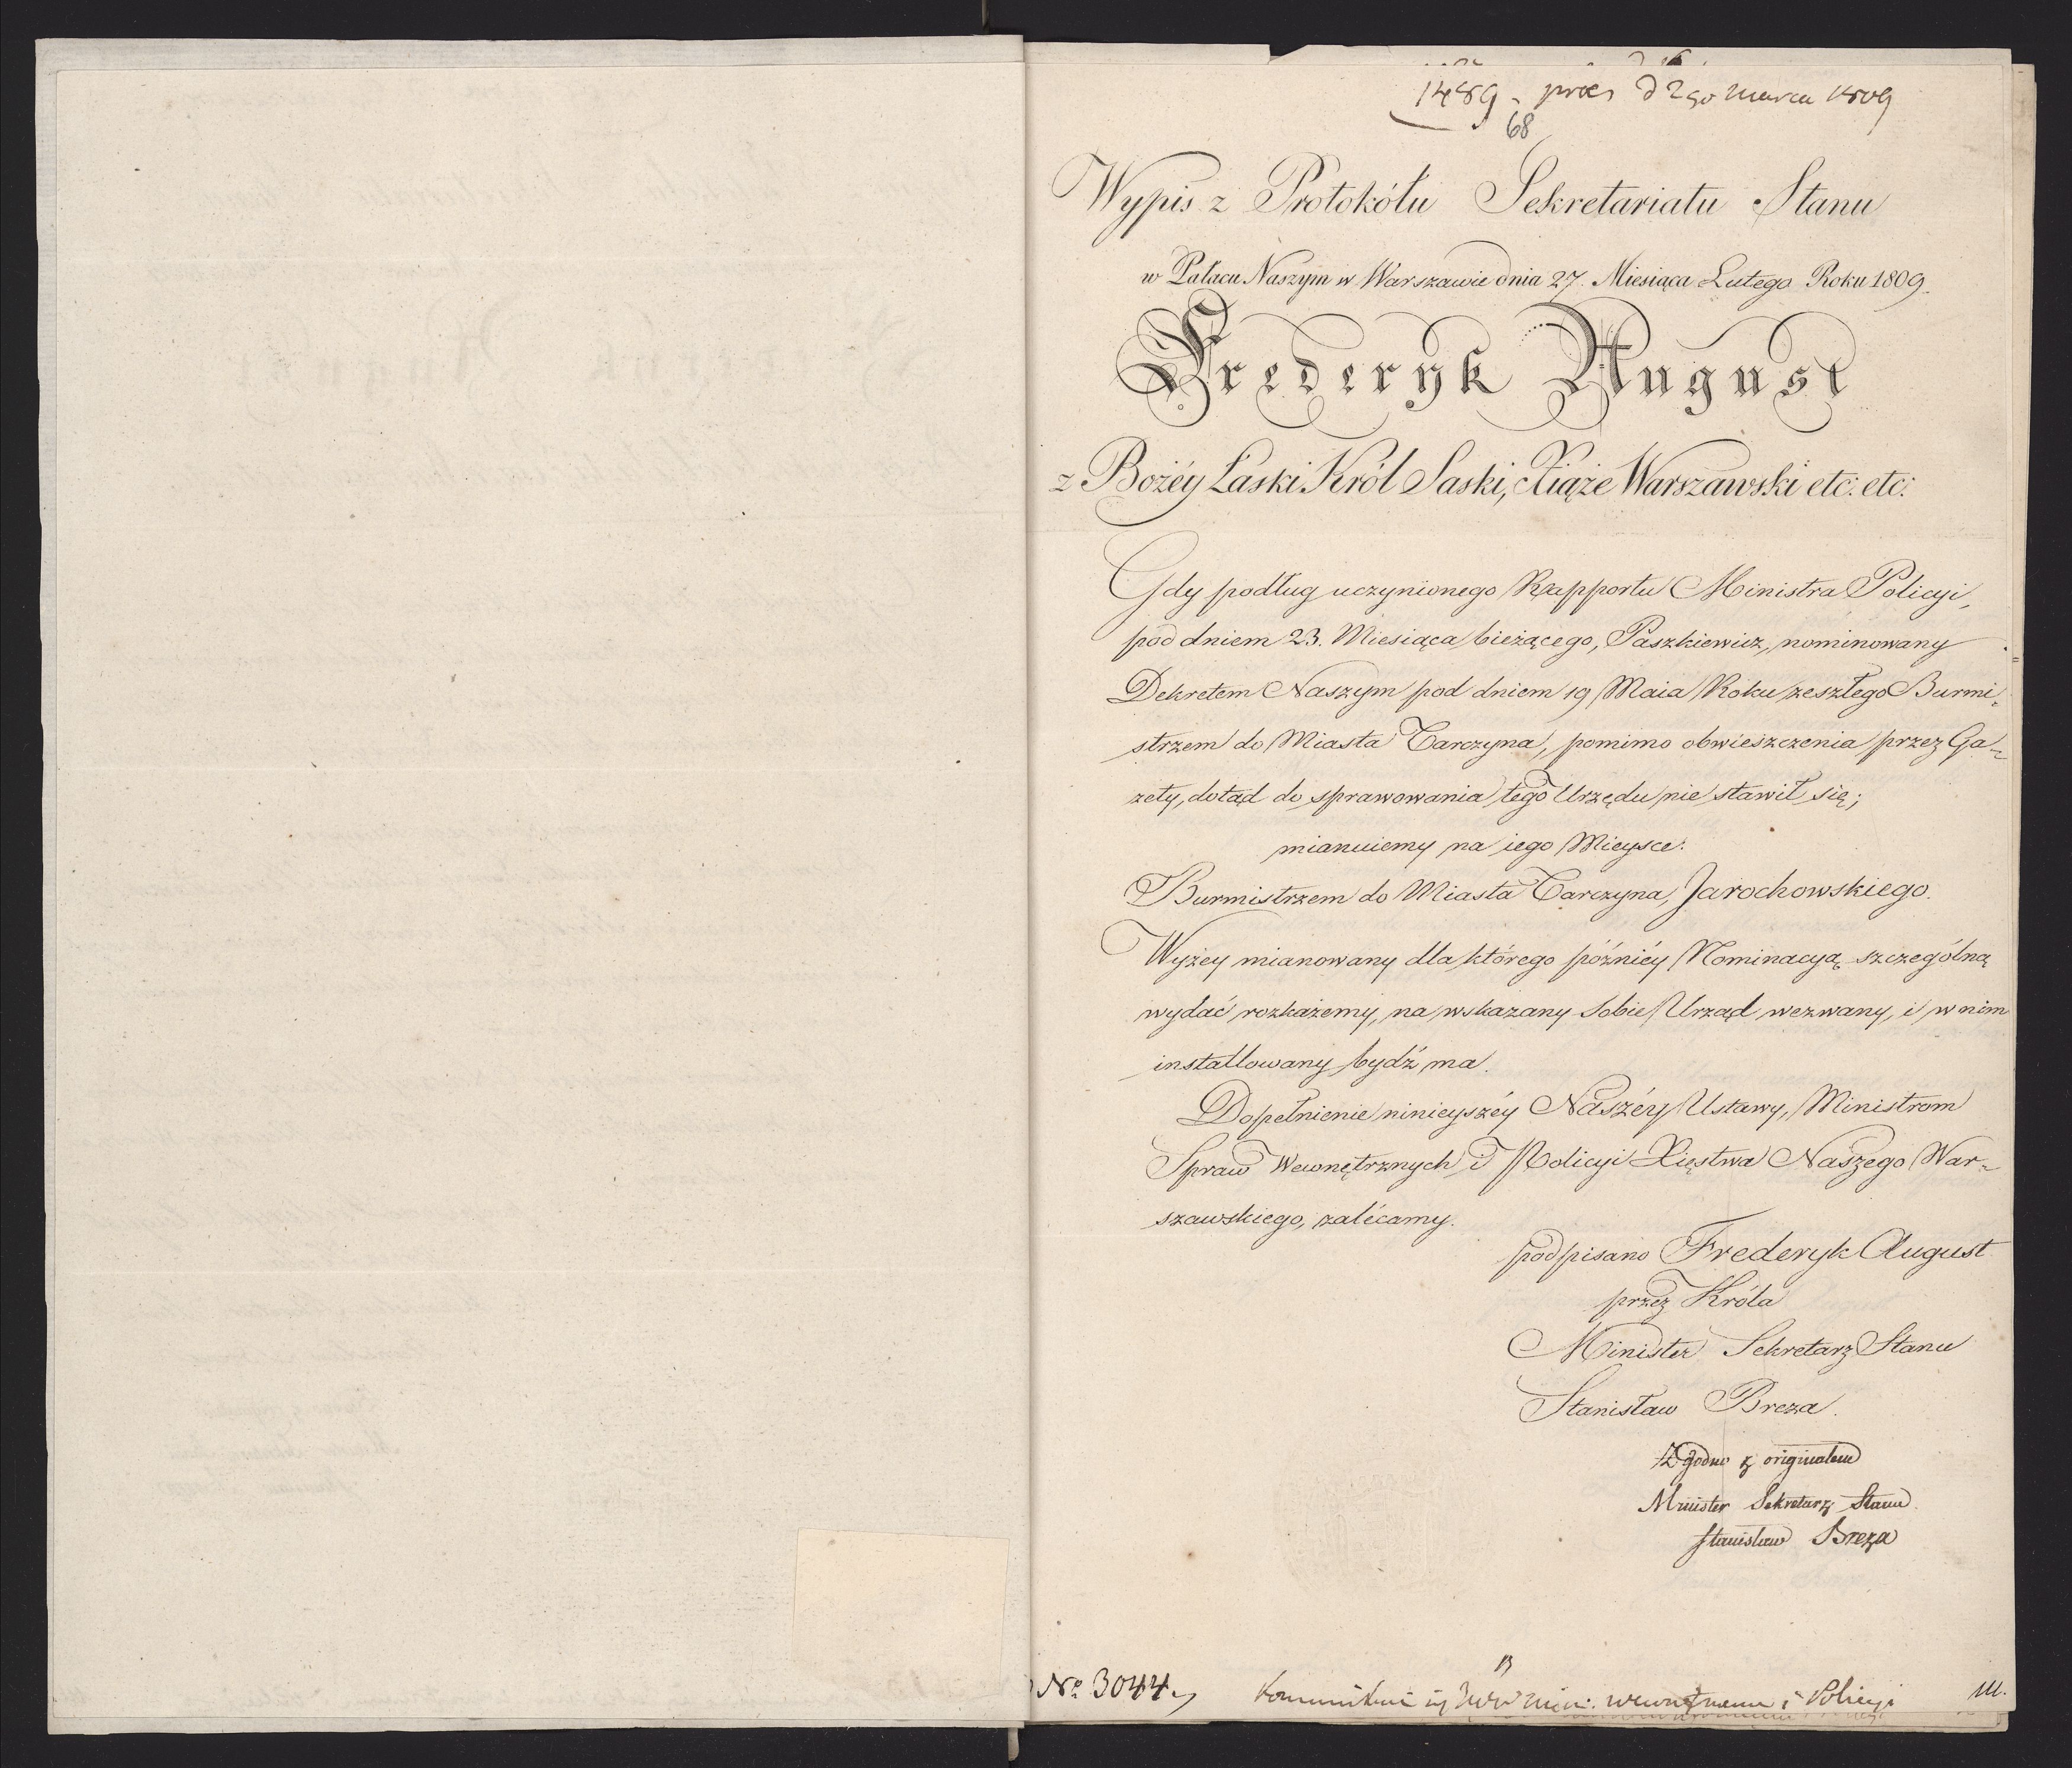 1489 praes d 2go Marca 1809
68
Wypis z Protokółu Sekretariatu Stanu
w Pałacu Naszym w Warszawie dnia 27. Miesiąca Lutego Roku 1809.
Frederyk August
z Bożéy Łaski Król Saski, Xiąże Warszawski etc: etc:
Gdy podług uczynionego Rapportu Ministra Policyi,
pod dniem 23. Miesiąca bieżącego, Paszkiewicz, nominowany
Dekretem Naszym pod dniem 19 Maia Roku zeszłego Burmi-
strzem do Miasta Tarczyna, pomimo obwieszczenia przez Ga-
zety, dotąd do sprawowania tego Urzędu nie stawił się;
mianuiemy na iego Mieysce:
Burmistrzem do Miasta Tarczyna, Jarochowskiego.
Wyżey mianowany dla którego późniéy Nominacyą szczególną
wydać rozkażemy, na wskazany Sobie Urząd wezwany, i w nim
installowany bydź ma.
Dopełnienie ninieyszéy Naszéy Ustawy, Ministrom
Spraw Wewnętrznych i Policyi Xięstwa Naszego War-
szawskiego, zalécamy.
podpisano Frederyk August
przez Króla
Minister Sekretarz Stanu
Stanisław Breza.
Zgodno z originałem
Minister Sekretarz Stanu
Stanisław Breza
No 3044
i Policyi